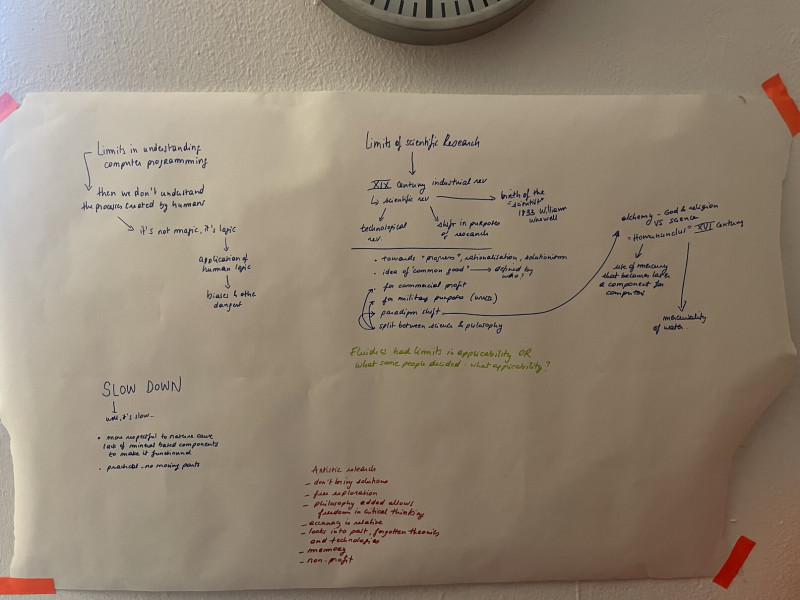 Limits in understanding
computer programming
then we don't understand
the processes created by humans
it's not magic, it's logic
application of
human logic
biases & other
dangers
Limits of scientific Research
XIX century industrial rev
↳ scientific rev
birth of the
"scientist"
1833 William
Whewell
technological
rev.
shift in purposes
of research
• towards "progress", rationalisation, solutionism
• idea of common good → defined by
who?
• for commercial profit
• for military purpose (WWII)
• paradigm shift
split between science & philosophy
alchemy - God & religion
VS science
"Homunculus" XVI century
use of mercury
that becomes later
a component for
computers
mercuriality
of water.
Fluidics had limits in applicability OR
what some people decided - what applicability?
SLOW DOWN
well, it's slow..
• more respectful to nature cause
lack of mineral based components
to make it
• practical - no moving parts
Artistic research
- don't bring solutions
- free exploration
- philosophy added allows
freedom in critical thinking
- accuracy is relative
- looks into past, forgotten theories
and technologies
- memory
- non-profit